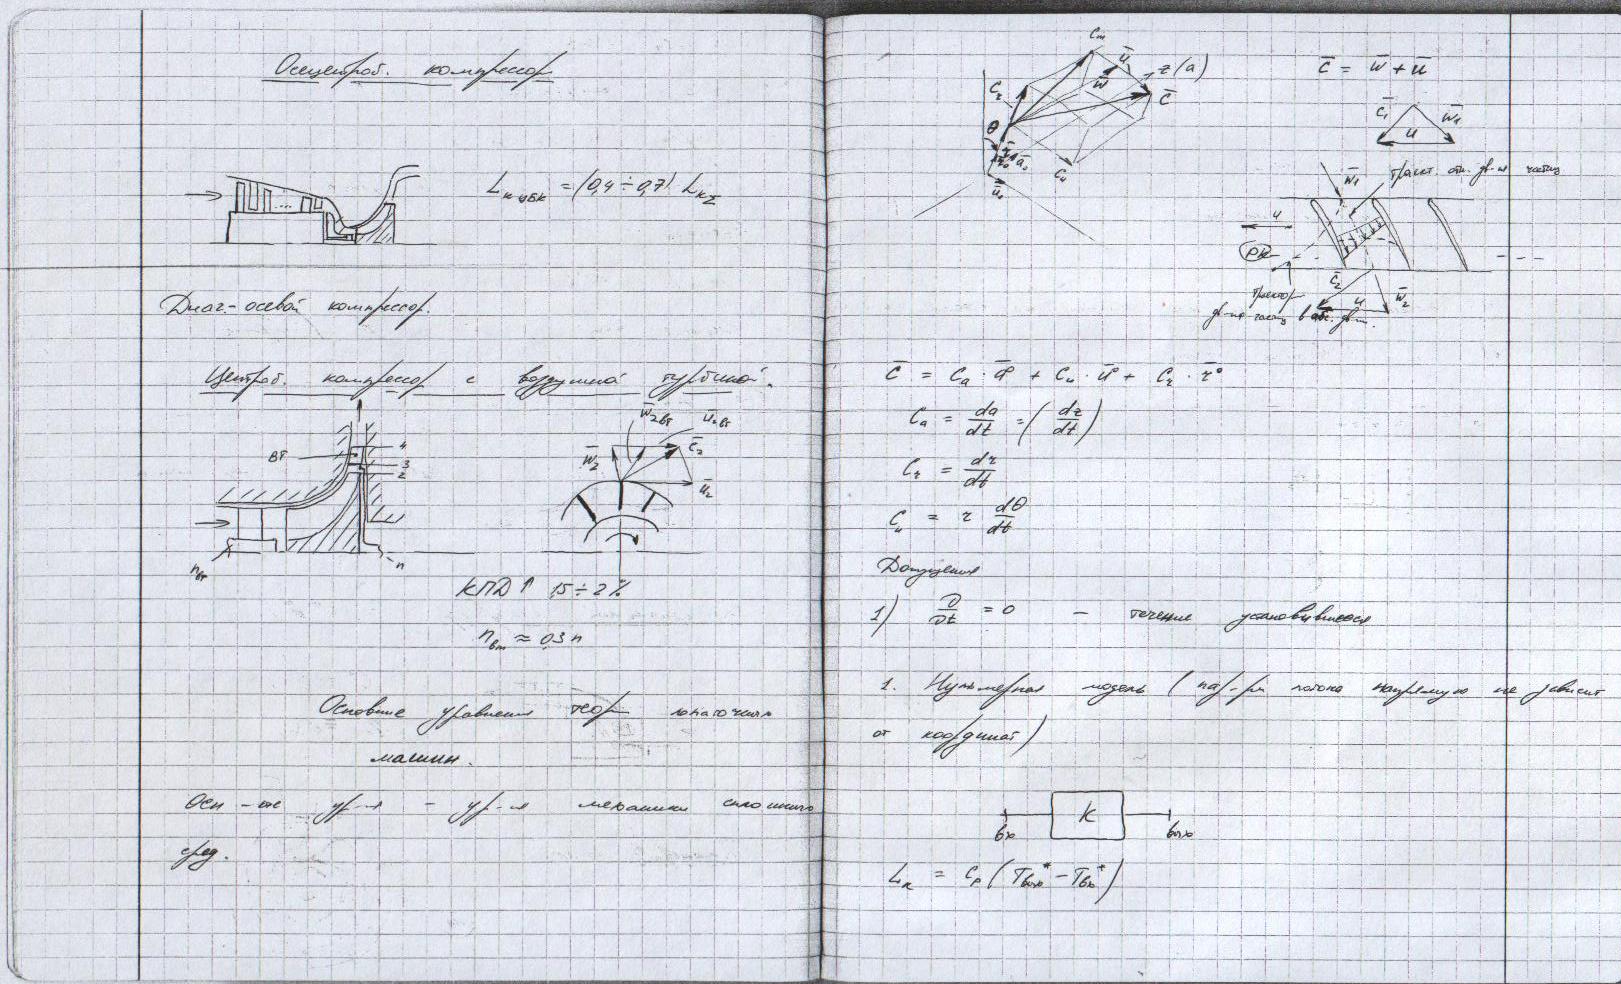 Осецентроб. компрессор
L к цбк = (0,4 ÷ 0,7) L кΣ
Диаг-осевой компрессор.
Центроб. компрессор с воздушной турбиной.
w̄2вт ū2вт
w̄2 c̄2
ū2
ВТ
4
3
2
nвт
n
КПД ↑ 1,5 ÷ 2 %
nвт ≈ 0,3 n
Основные уравнения теор лопаточных
машин.
Осн-ые ур-я - ур-я механики сплошной
сред.
Cm
ū
z(a)
w̄
c̄
Cr
θ
Cu
c̄ = w̄ + ū
c̄1 w̄1
u
w̄1
траект. отн. дв-я частиц
u
РК
c̄2
u
w̄2
траектор
дв-я частиц в абс. дв-и.
c̄ = Ca · ā° + Cu · ū° + Cr · r̄°
Ca = da/dt = (dz/dt)
Cr = dr/dt
Cu = r dθ/dt
Допущения
1) ∂/∂t = 0 - течение установившееся
1. Нульмерная модель (пар-ры потока напрямую не зависят
от координат)
К
вх
вых
Lк = Cp (Tвых* - Tвх*)